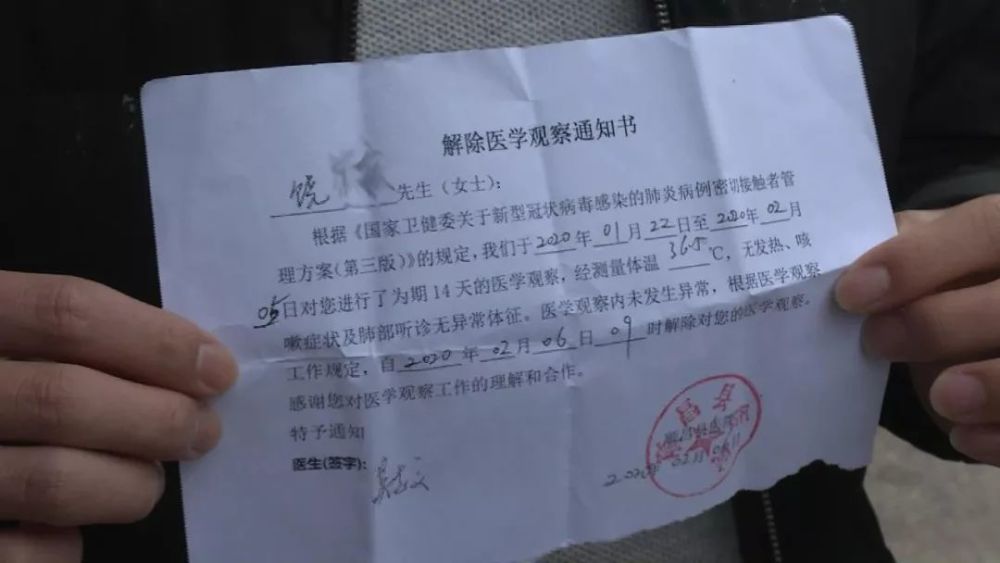 解除医学观察通知书
饶 先生（女士）：
根据《国家卫健委关于新型冠状病毒感染的肺炎病例密切接触者管
理方案（第三版）》的规定，我们于2020年01月22日至2020年02月
05日对您进行了为期14天的医学观察，经测量体温36.5℃，无发热、咳
嗽症状及肺部听诊无异常体征。医学观察内未发生异常，根据医学观察
工作规定，自2020年02月06日09时解除对您的医学观察。
感谢您对医学观察工作的理解和合作。
特予通知
医生(签字):
2020年02月06日